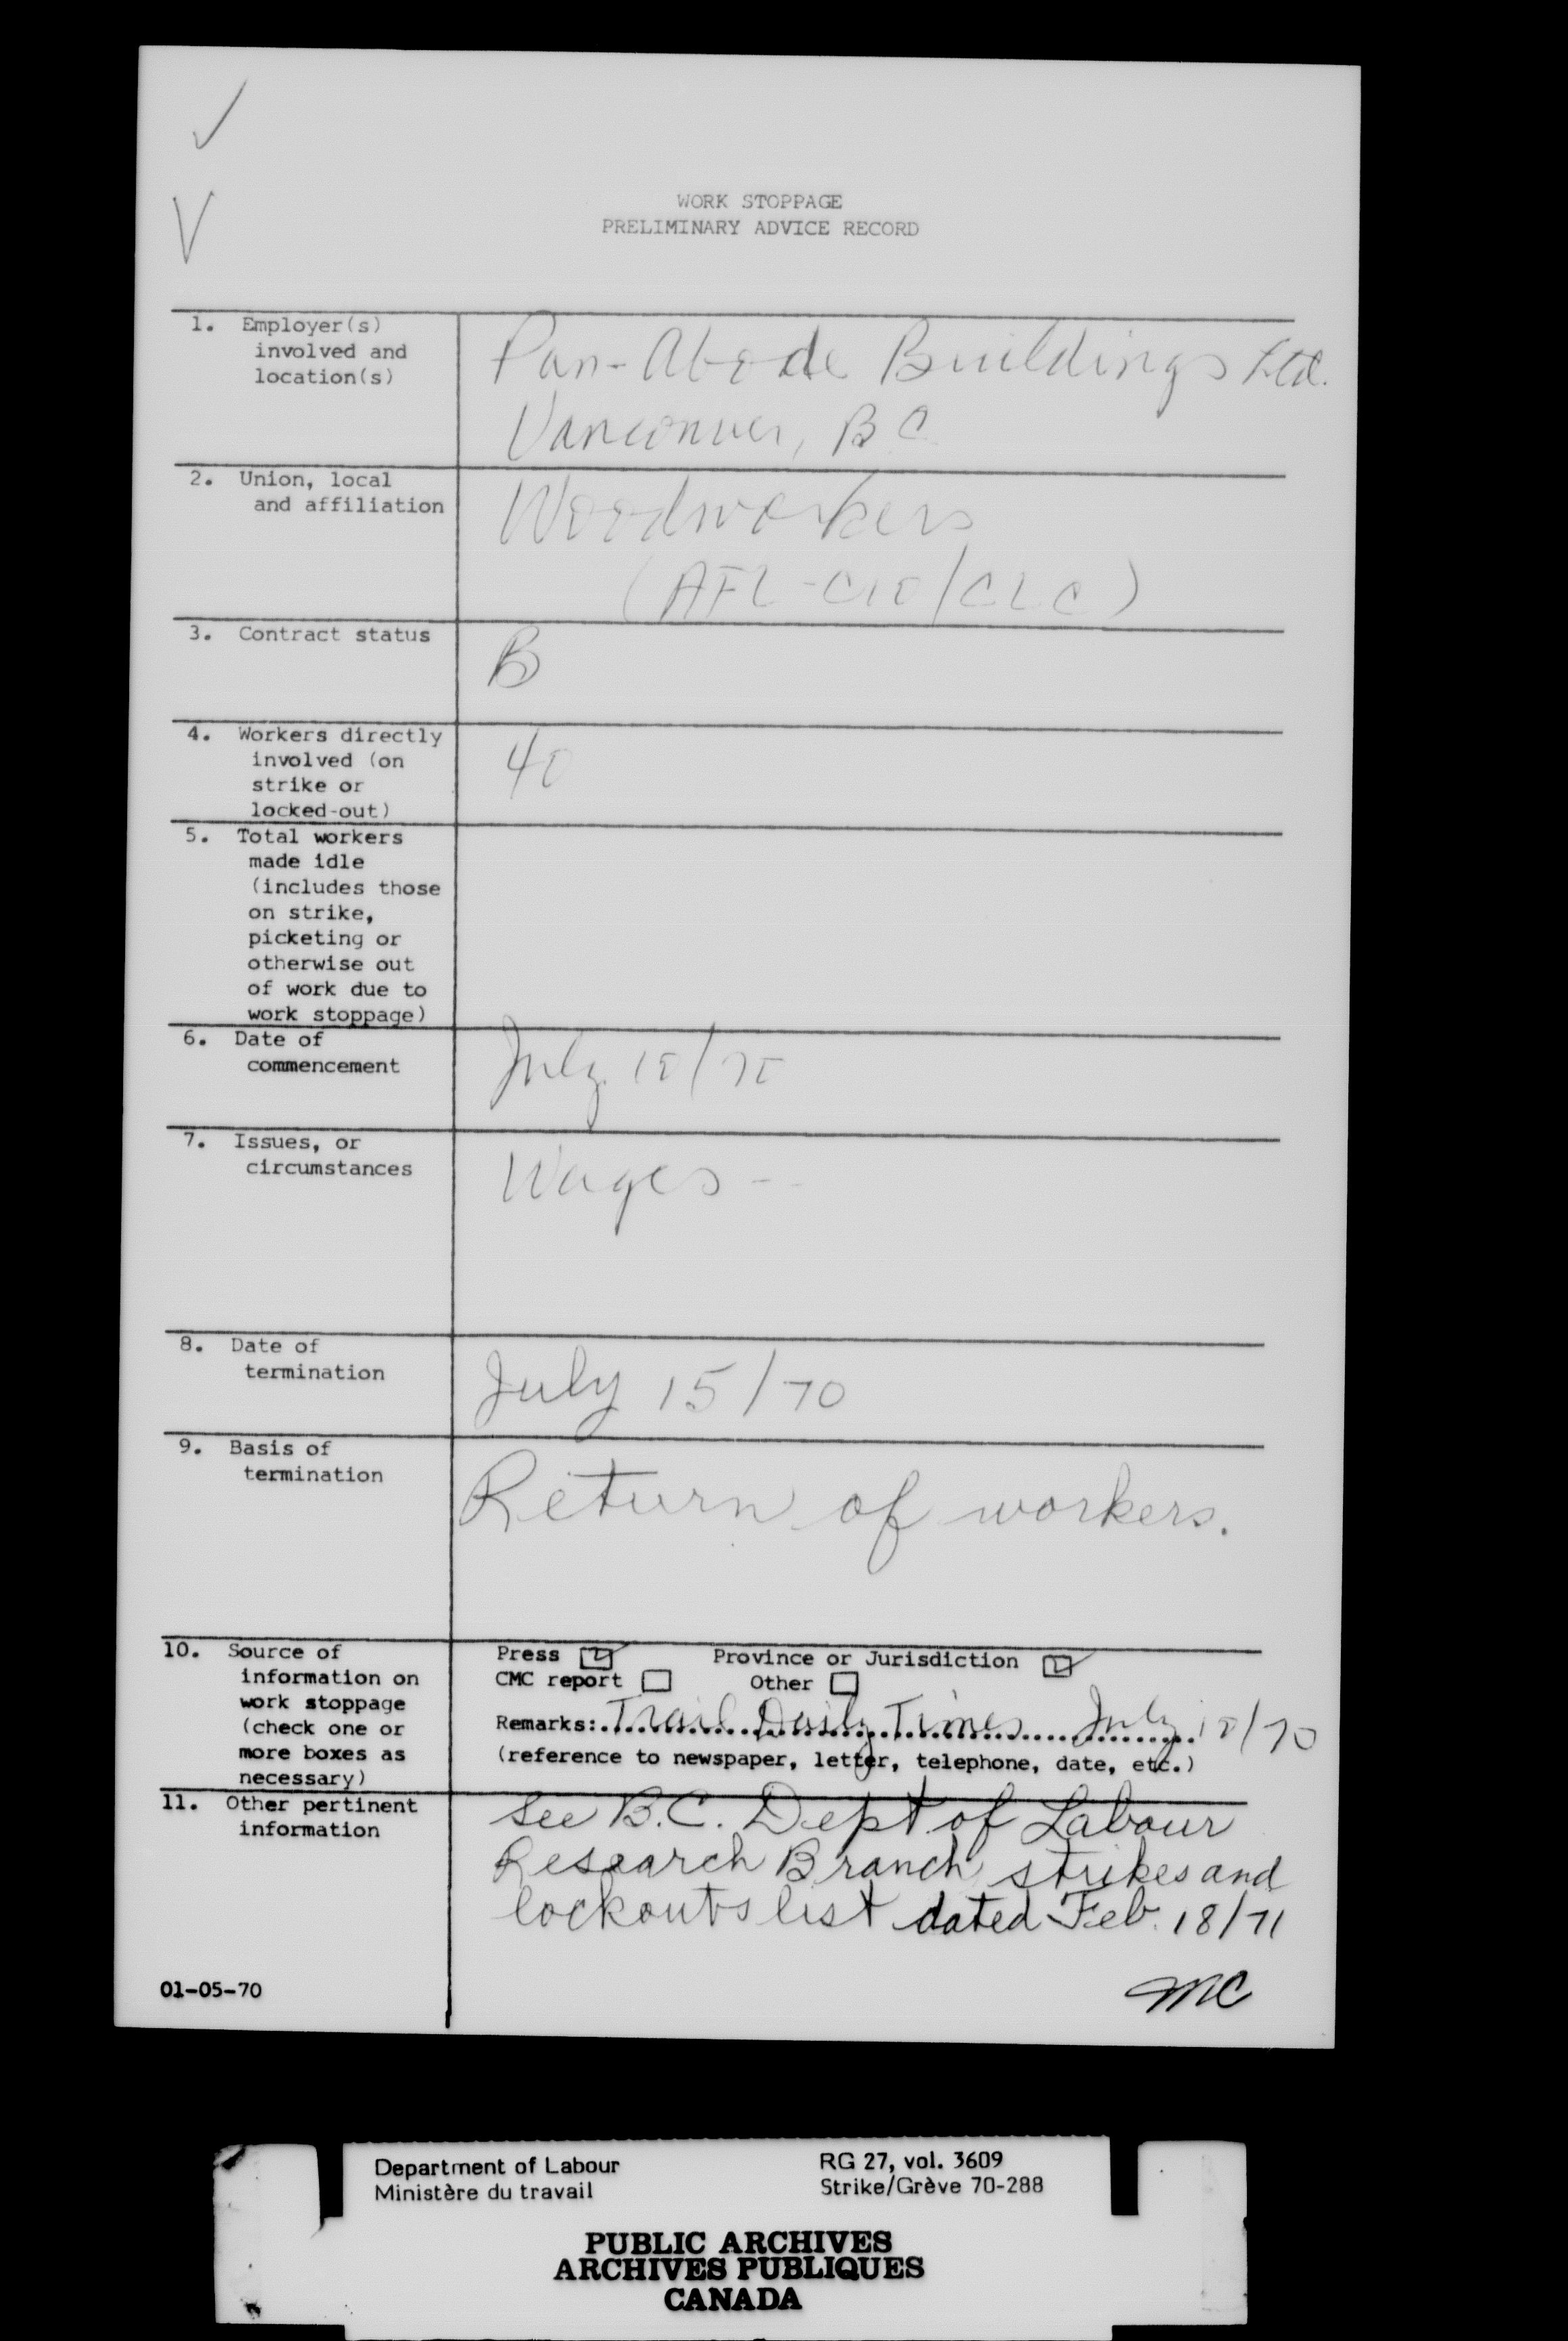 WORK STOPPAGE
PRELIMINARY ADVICE RECORD
1. Employer(s)
involved and
location(s)
Pan-Abode Buildings Ltd.
Vancouver, BC
2. Union, local
and affiliation
Woodworkers
(AFL-CIO/CLC)
3. Contract status
B
4. Workers directly
involved (on
strike or
locked-out)
40
5. Total workers
made idle
(includes those
on strike,
picketing or
otherwise out
of work due to
work stoppage)
6. Date of
commencement
July 10/70
7. Issues, or
circumstances
Wages --
8. Date of
termination
July 15/70
9. Basis of
termination
Return of workers.
10. Source of
information on
work stoppage
(check one or
more boxes as
necessary)
Press ☑ Province or Jurisdiction ☑
CMC report ☐ Other ☐
Remarks: Trail Daily Times July 10/70
(reference to newspaper, letter, telephone, date, etc.)
11. Other pertinent
information
See B.C. Dept of Labour
Research Branch strikes and
lockouts list dated Feb. 18/71
MC
01-05-70
Department of Labour
Ministère du travail
RG 27, vol. 3609
Strike/Grève 70-288
PUBLIC ARCHIVES
ARCHIVES PUBLIQUES
CANADA